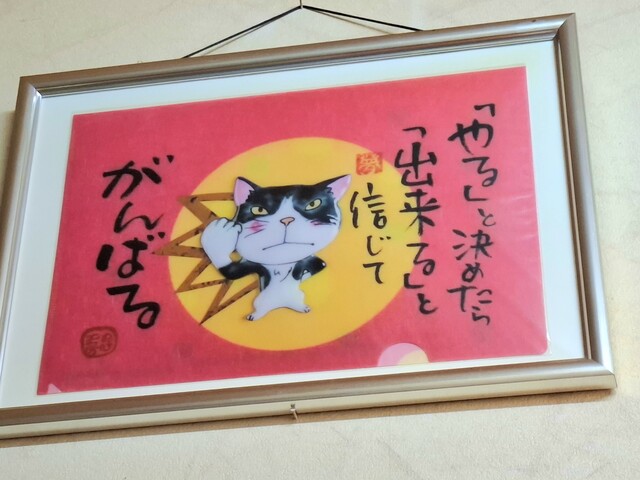 「やる」と決めたら
「出来る」と
信じて
がんばる。